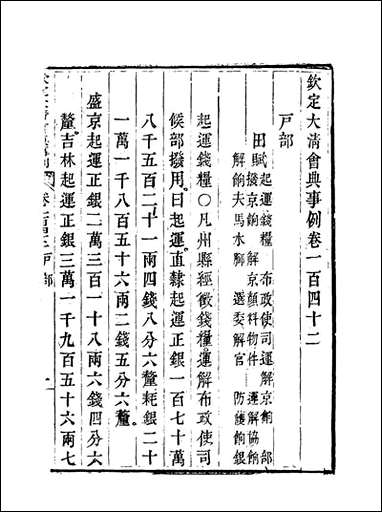 欽定大清會典事例卷一百四十二
戶部
田賦 起運錢糧 布政使司運解京餉 部
撥京餉 解京顏料物件 運解協餉
解餉夫馬水腳 選委解官 防護餉銀
起運錢糧○凡州縣經徵錢糧運解布政使司
候部撥用曰起運直隸起運正銀一百七十萬
八千五百二十一兩四錢八分六釐耗銀二十
一萬一千八百五十六兩二錢五分六釐
盛京起運正銀二萬三百一十八兩六錢四分六
釐吉林起運正銀三萬一千九百五十六兩七